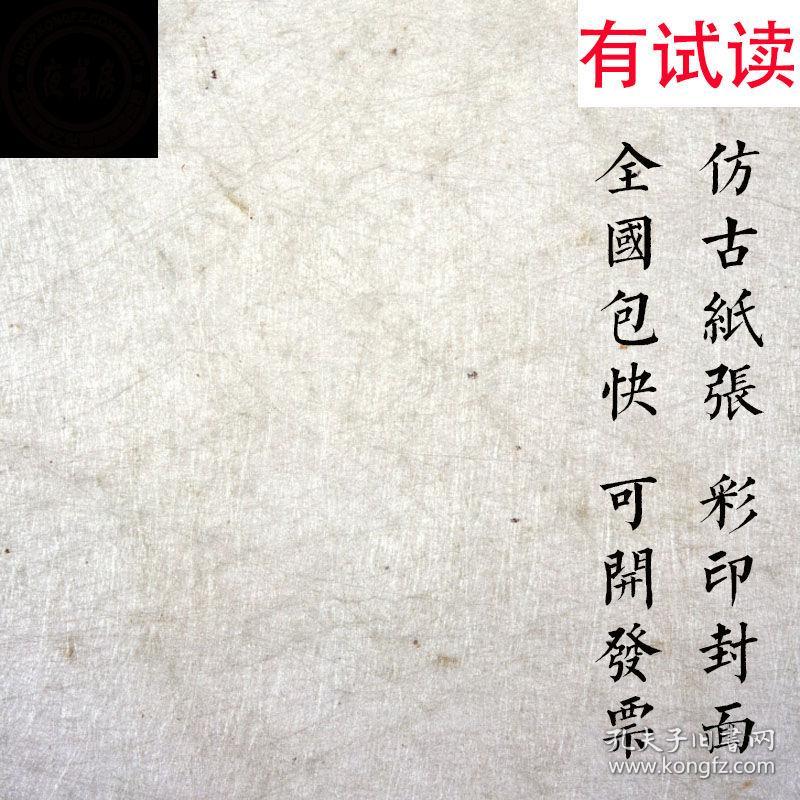 有试读
仿古紙張 彩印封面
全國包快 可開發票
孔夫子旧書网
www.kongfz.com